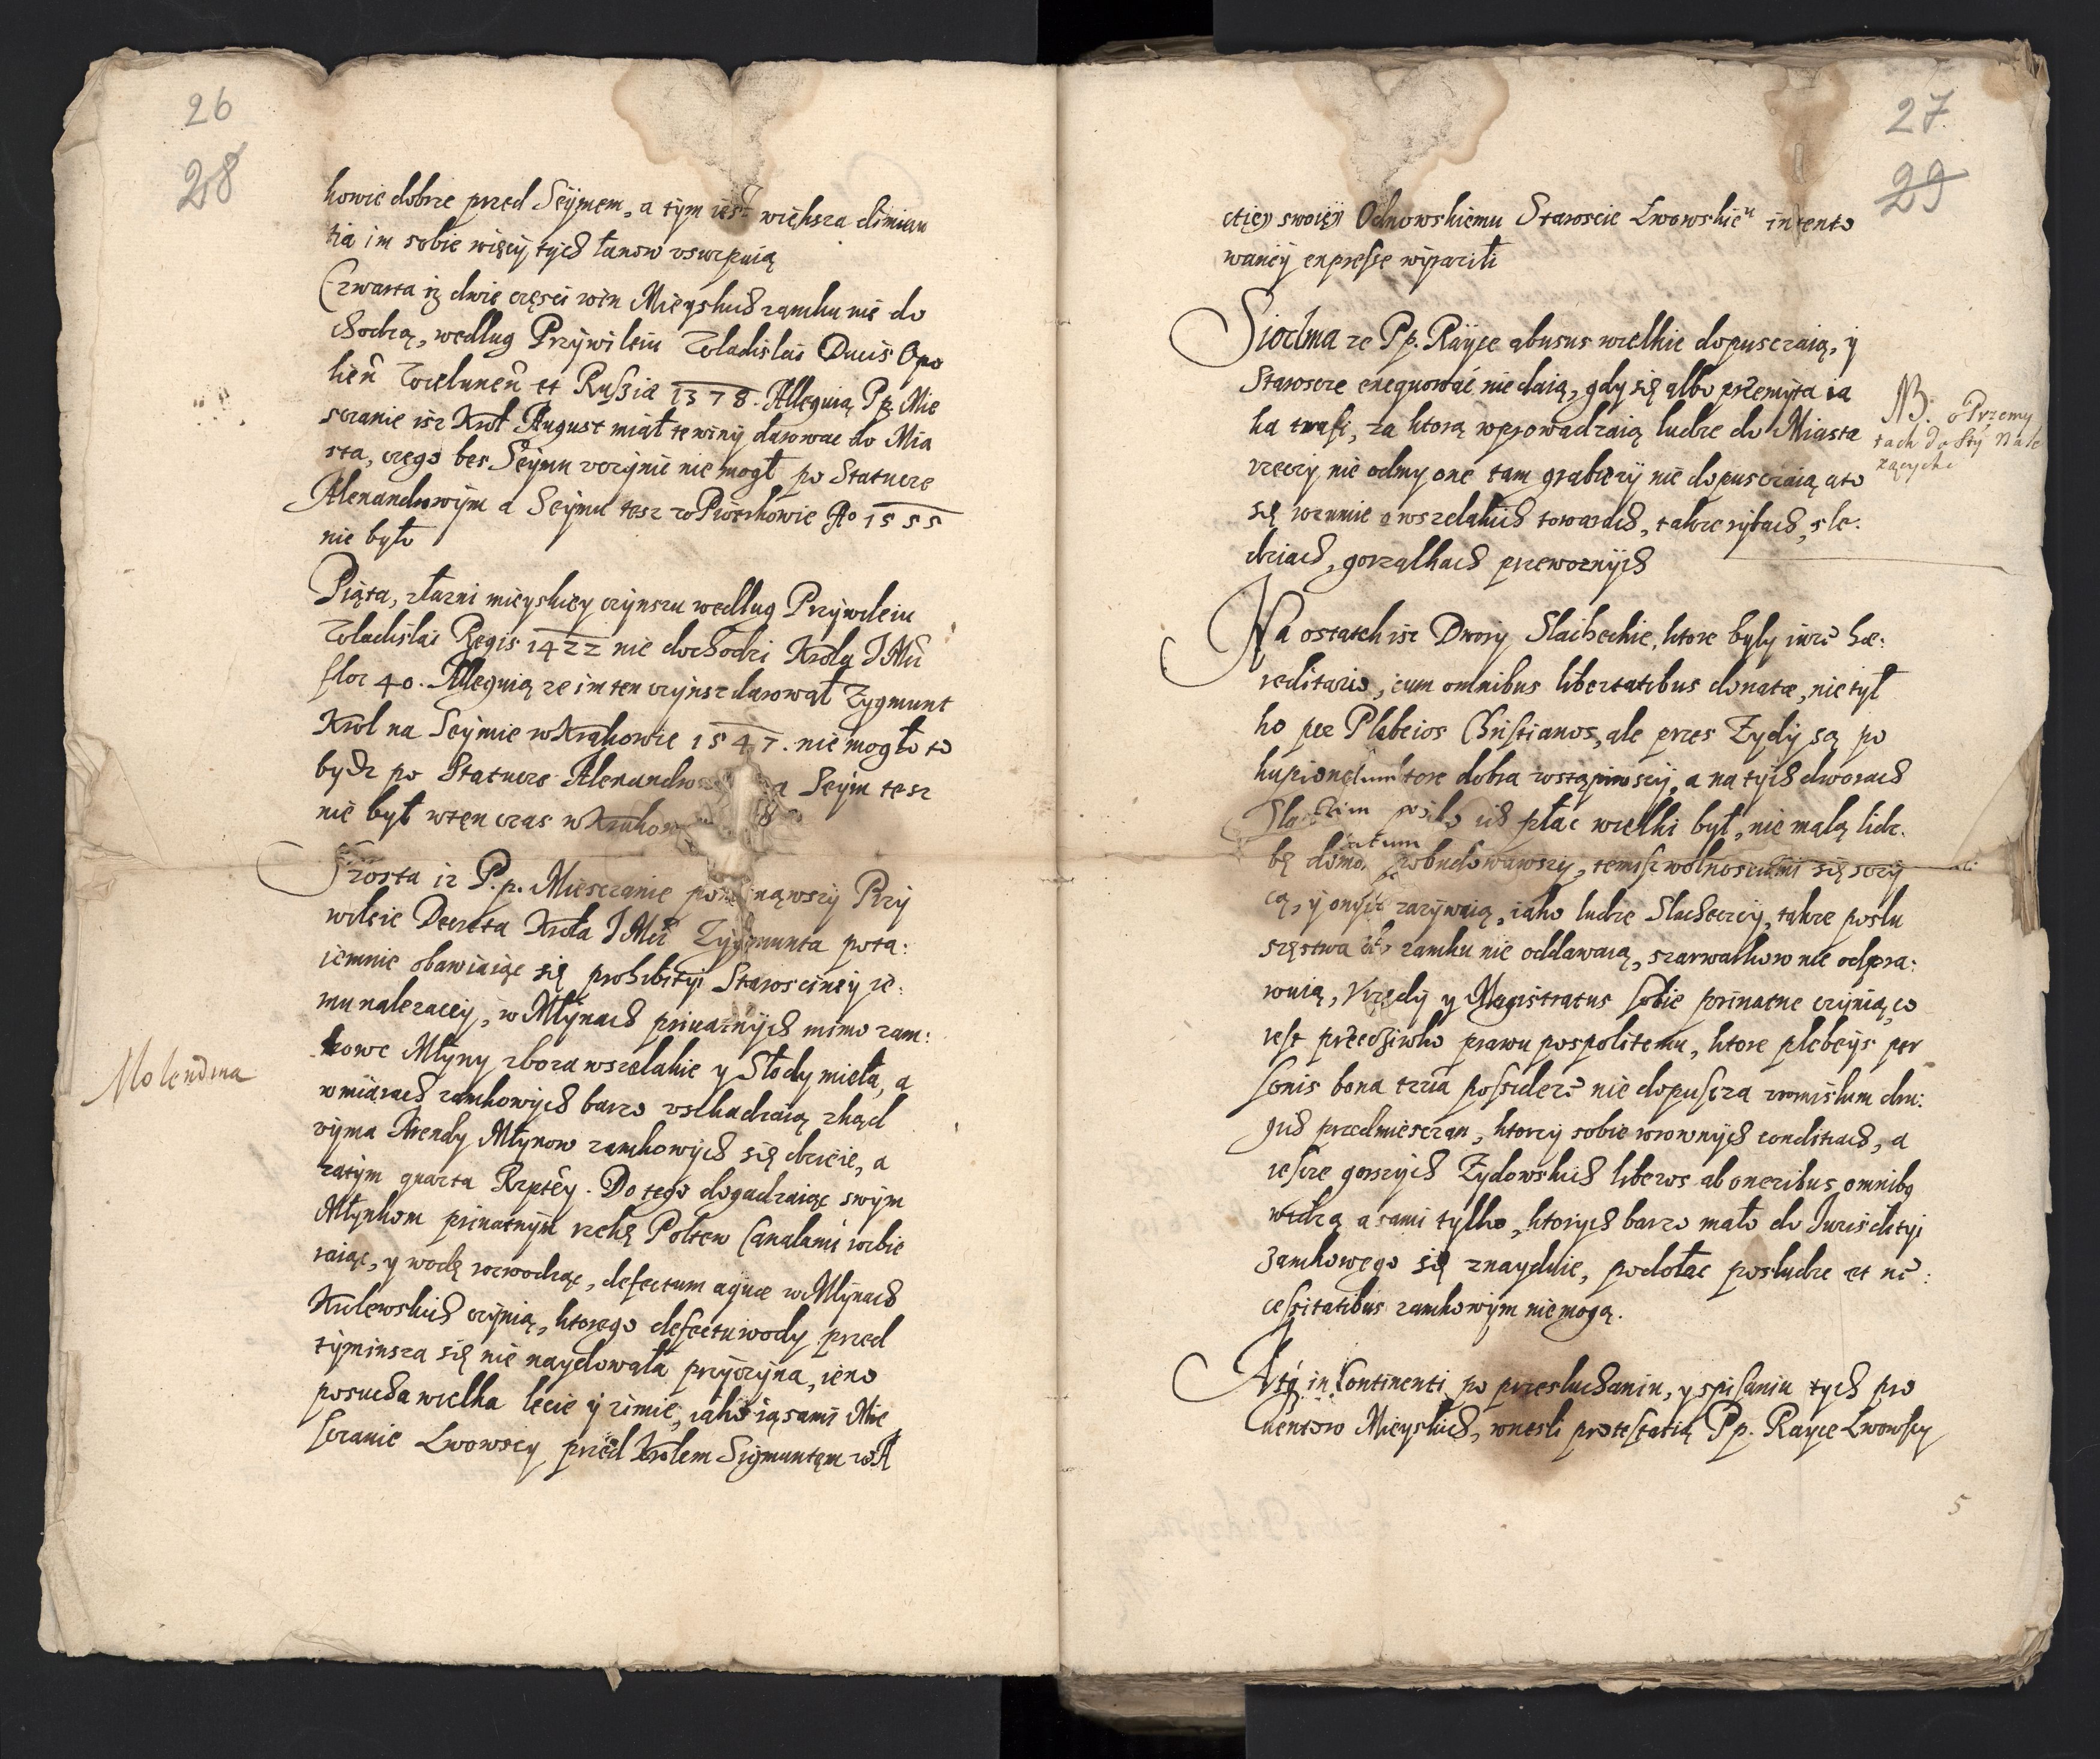 26
28
kowie dobrze przed Seymem, a tym iest większa diminu
tia im sobie więcy tych łanow vsurpuią
Czwarta iz dwie części win Mieyskich zamku nie do
chodzą, według Przywileiu Wladislai Ducis Opo
lien̄ Welunen̄ et Russiæ 1378. Alleguią Pp. Mie
sczanie isz Krol August miał te winy darowac do Mia
sta, czego bes Seymu vczynic nie mogł po Statucie
Alexandrowym a Seymu tesz w Piotrkowie Ao 1555
nie było
Piąta, z łazni mieyskiey czynszu według Przywileiu
Wladislai Regis 1422 nie dochodzi Krola J Mci
flor 40. Alleguią ze im ten czynsz darował Zygmunt
Krol na Seymie w Krakowie 1547. nie mogło to
bydz po Statucie Alexandro a Seym tesz
nie był w ten czas w Krakow
Szosta iz P.p. Miesczanie pominąwszy Przy
wileie Decreta Krola J Mci Zygmunta pota:
iemnie obawiaiąc się prohibityi Starosciney ie:
mu nalezacey, w Młynach priuatnych mimo zam:
kowe Młyny zboza wszelakie y Słody mielą, a
w miarach zamkowych barzo vszkadzaią zkąd
vyma Arendy Młynow zamkowych się dzieie, a
zatym quarta Rzptey. Do tego dogadzaiąc swym
Młynkom priuatnym rzekę Połtew Canalami wbie
raiąc, y wodę rozwodząc, defectum aquæ w Młynach
Krolewskich czynią, ktorego defectu wody przed
tym insza się nie naydowała przyczyna, ieno
posucha wielka lecie y zimie, iako ią sami Mie
sczanie Lwowscy przed Krolem Sigmuntem w A
Molendina
27
29
ctiey swoiey Odnowskiemu Staroscie Lwowskieu intento
waney expresse wyrazili
Siodma ze Pp. Rayce abusus wielkie dopusczaią, y
Starosce exequowac nie daią, gdy się albo przemyta ia
ka trafi, za ktorą wprowadzaią ludze do Miasta
rzeczy nie odmyone tam grabiezy nie dopusczaią a to
się rozumie o wszelakich towarach, takze rybach, sle:
dziach, gorzałkach przewoznych
NB. o Przemy
tach do Sty nale
zących
Na ostatek isz Dwory Slacheckie, ktore były iure hæ:
reditario, cum omnibus libertatibus donatæ, nie tyl
ko per Plebeios Christianos, ale przes Zydy są po
kupione ktore dobra wstąpiwszy, a na tych dworach
Sla ich płac wielki był, nie małą licz:
bę domo pobudowawszy, temisz wolnosciami się szczy
cą, y onych zazywaią, iako ludzie Slacheccy, takze poslu
szęstwa do zamku nie oddawaią, szarwarkow nie odpra:
wuią, Vrzędy y Magistratus sobie priuatne czynią, co
iest przeciwko prawu pospolitemu, ktore plebeys per
sonis bona trr̄ia possidere nie dopuscza womislum dru:
gich przedmiesczan, ktorzy sobie rownych conditiach, a
iescze gorszych Zydowskich liberos ab oneribus omnibq
widzą a sami tylko, ktorych barzo mało do Jurisdityi
Zamkowego się znayduie, podołac posludze et ne:
cessitatibus zamkowym nie mogą.
Astq in Continenti po przesluchaniu, y spisaniu tych pro
uentow Mieyskich, wnesli protestatią Pp. Rayce Lwowscy
5